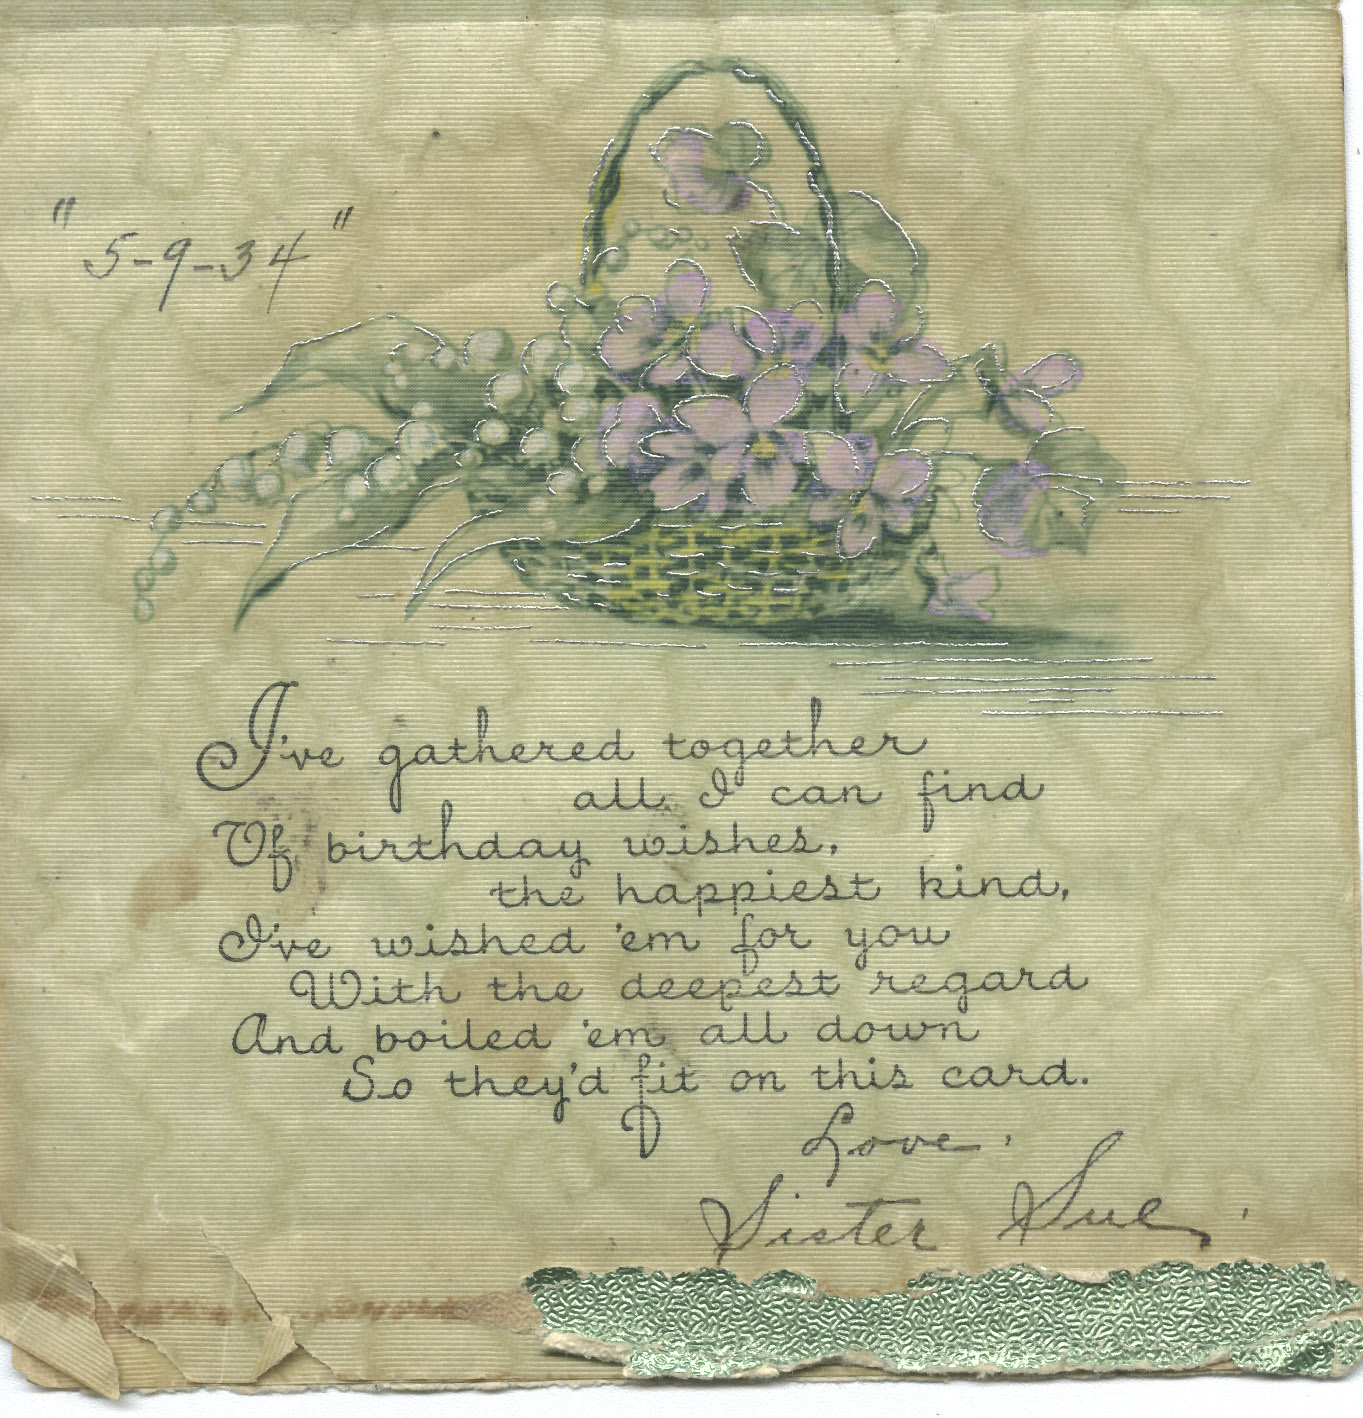 "5-9-34"
I've gathered together
all I can find
Of birthday wishes,
the happiest kind,
I've wished 'em for you
With the deepest regard
And boiled 'em all down
So they'd fit on this card.
Love.
Sister Sue.